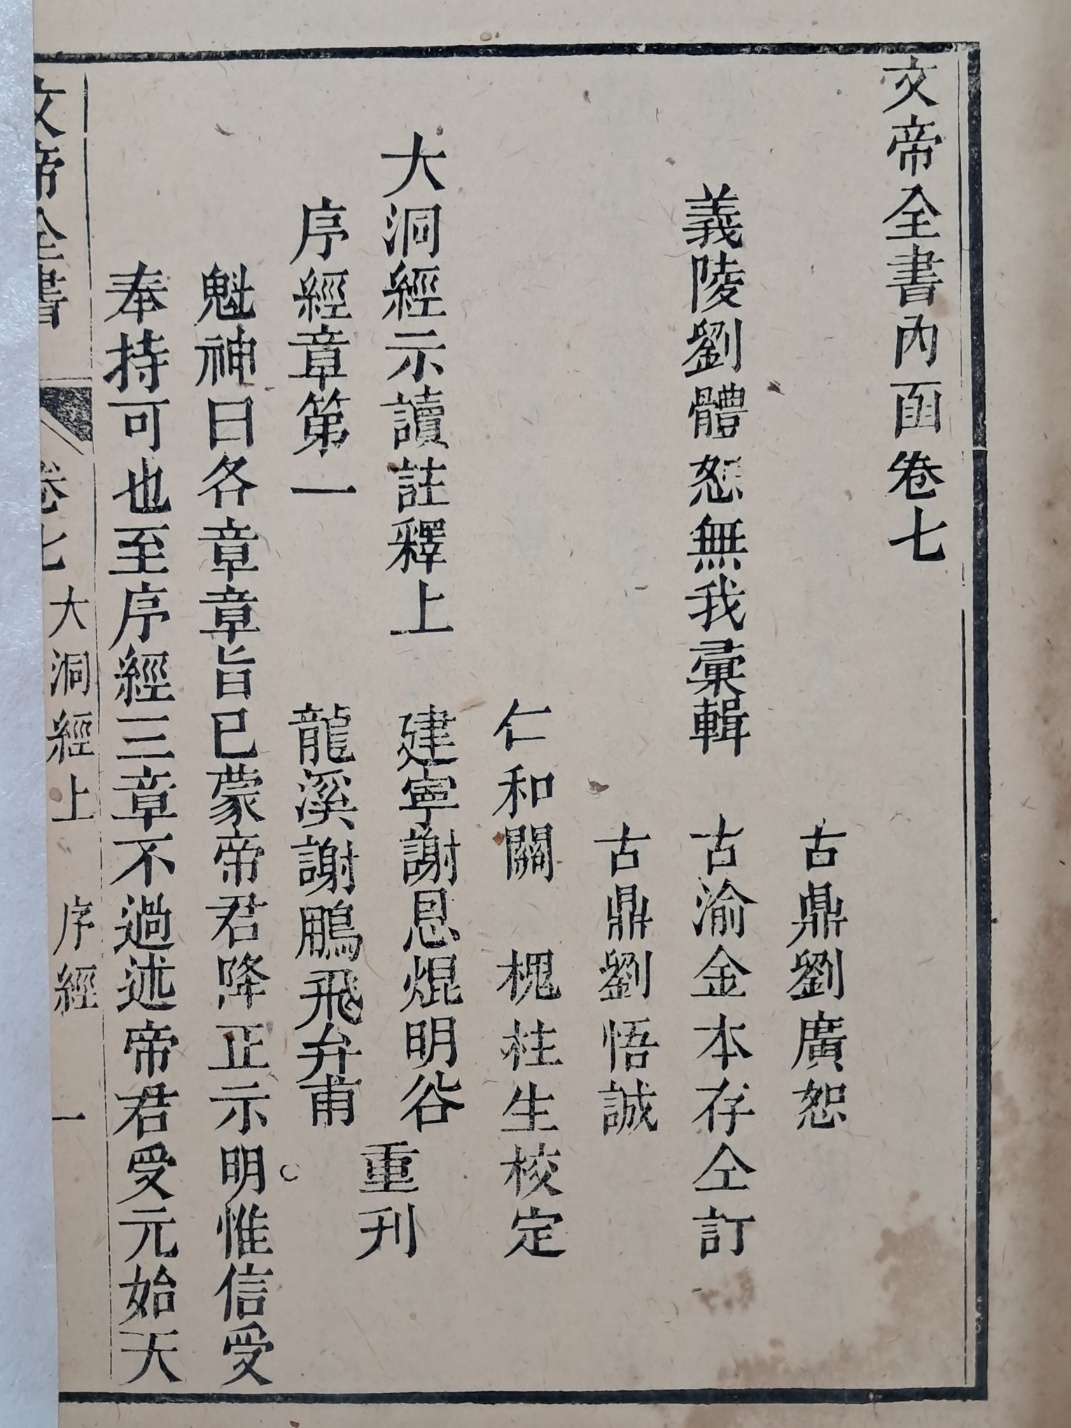 文帝全書內函卷七
古鼎劉廣恕
義陵劉體恕無我彙輯 古渝金本存仝訂
古鼎劉悟誠
仁和關 槐柱生校定
大洞經示讀註釋上 建寧謝恩焜明谷
重刊
序經章第一 龍溪謝鵬飛弁甫
魁神曰各章章旨已蒙帝君降正示明惟信受
奉持可也至序經三章不過述帝君受元始天
文帝全書 卷七 大洞經上 序經 一